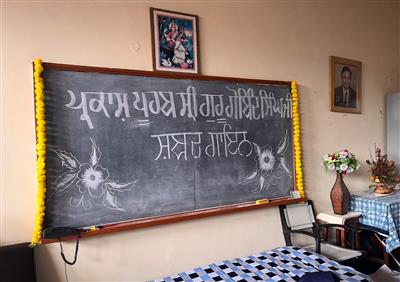 ਪ੍ਰਕਾਸ਼ ਪੂਰਬ ਸ੍ਰੀ ਗੁਰੂ ਗੋਬਿੰਦ ਸਿੰਘ ਜੀ
ਸ਼ਬਦ ਗਾਇਨ